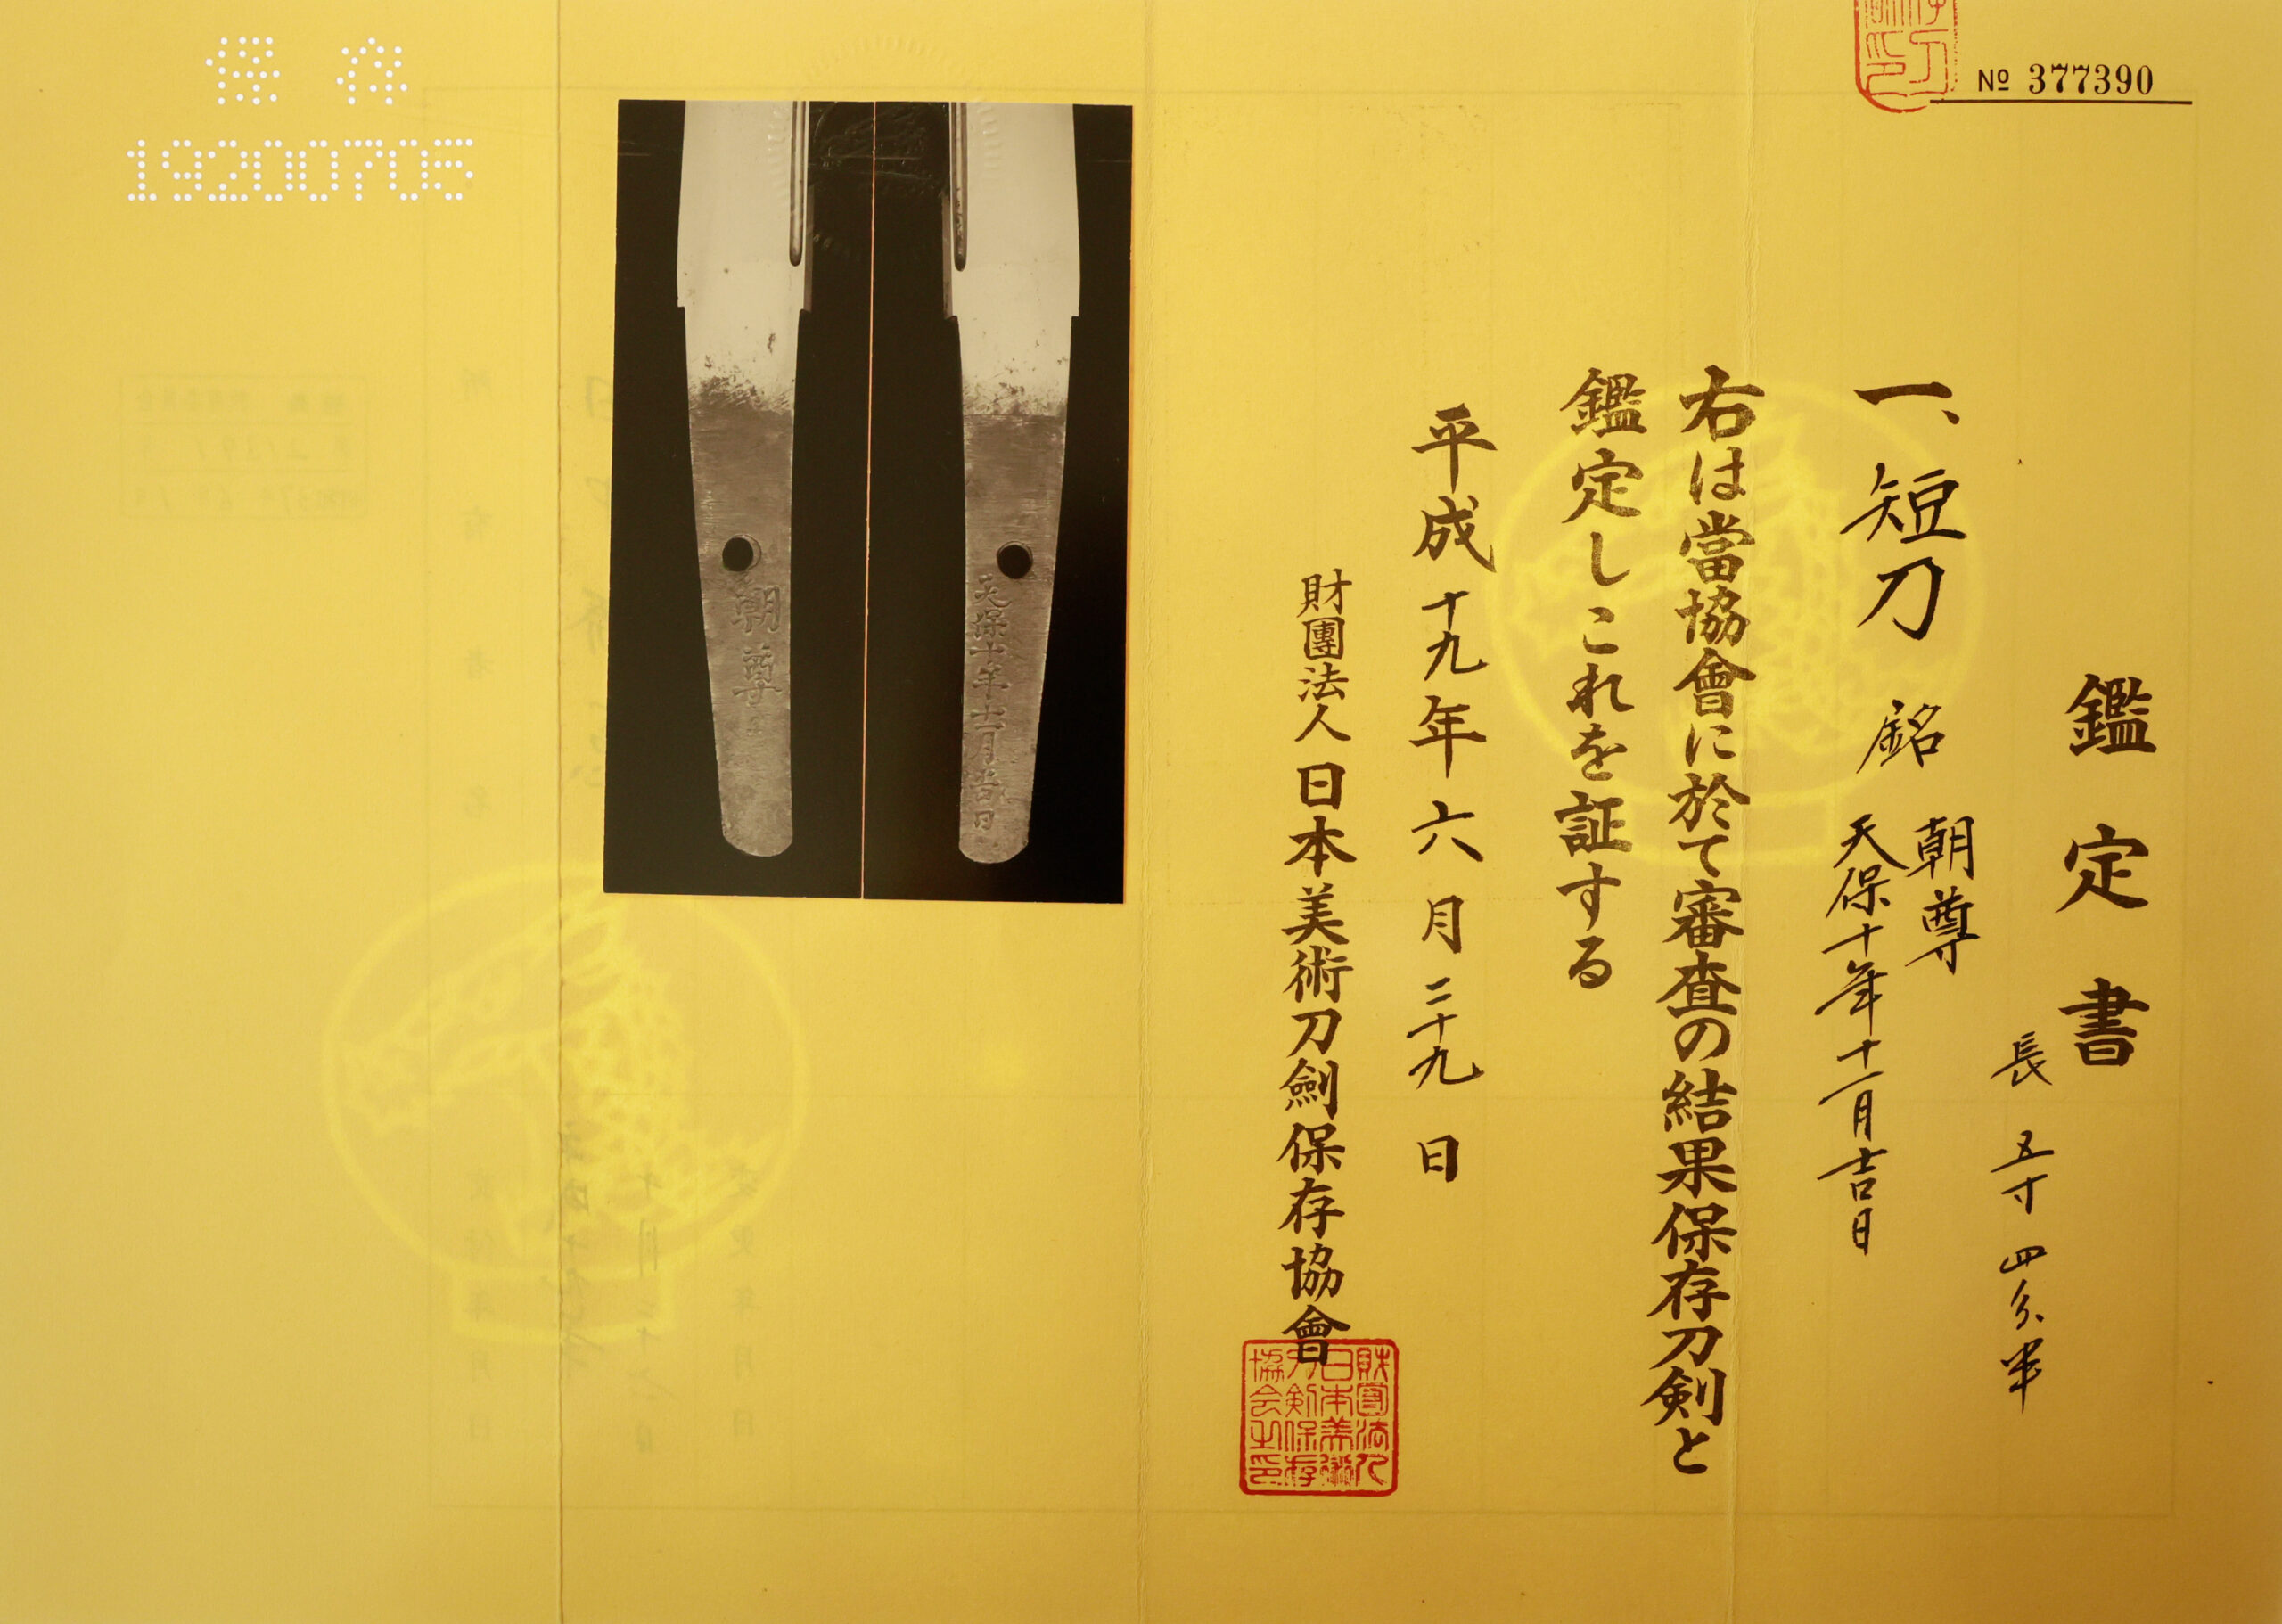 № 377390
鑑定書
長 五寸四分半
一、短刀 銘 朝尊
天保十年十一月吉日
右は當協會に於て審査の結果保存刀剣と
鑑定しこれを証する
平成十九年六月二十九日
財團法人日本美術刀劍保存協會
財団法人
日本美術
刀剣保存
協会之印
天保十年十一月吉日
朝尊
保存
19200705